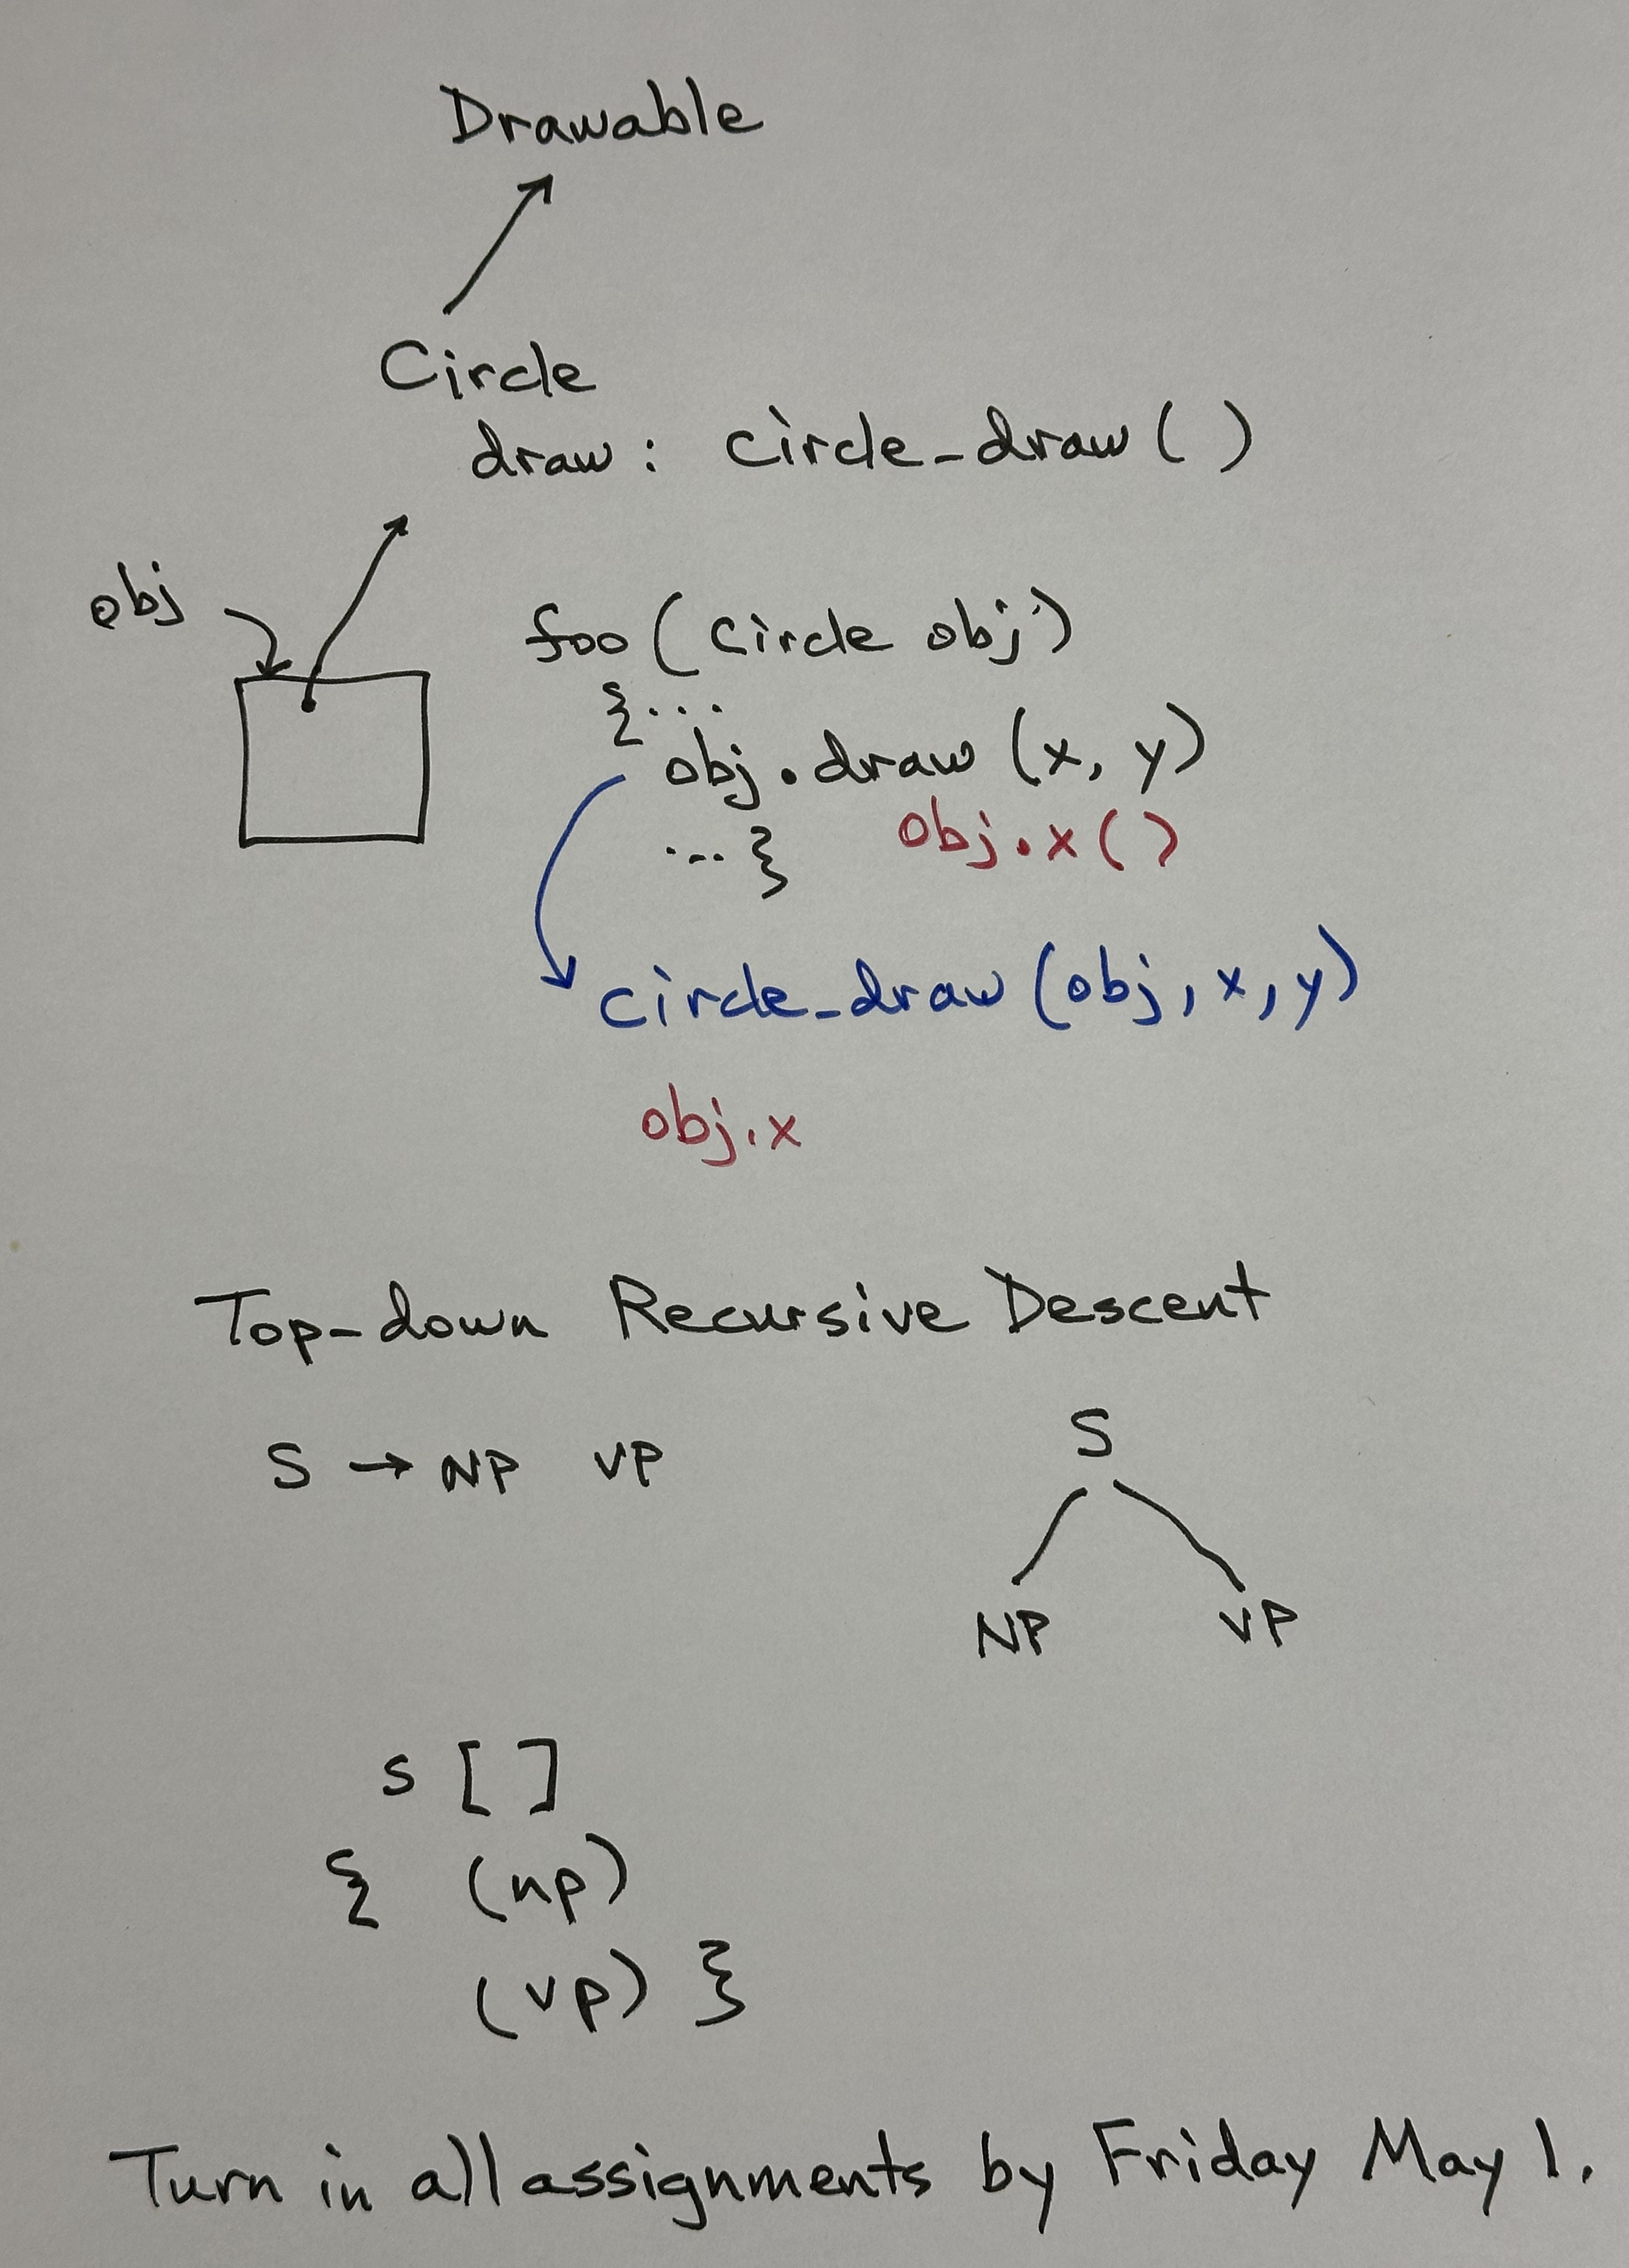 Drawable
Circle
draw: circle_draw()
obj
foo(circle obj)
{...
obj.draw(x, y)
...}
obj.x()
circle_draw(obj, x, y)
obj.x
Top-down Recursive Descent
S → NP VP
S
NP VP
s []
{ (np)
(vp) }
Turn in all assignments by Friday May 1.